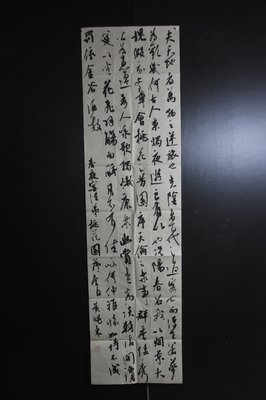 夫天地者萬物逆旅也光陰者百代之過客也而浮生若夢
為歡幾何古人秉燭夜遊良有以也況陽春召我以煙景大
塊假我以文章會桃花之芳園序天倫之樂事群季俊秀
皆為惠連吾人詠歌獨慚康樂幽賞未已高談轉清開瓊
筵以坐花飛羽觴而醉月不有佳作何伸雅懷如詩不成
罰依金谷酒數
春夜宴從弟桃花園序李白